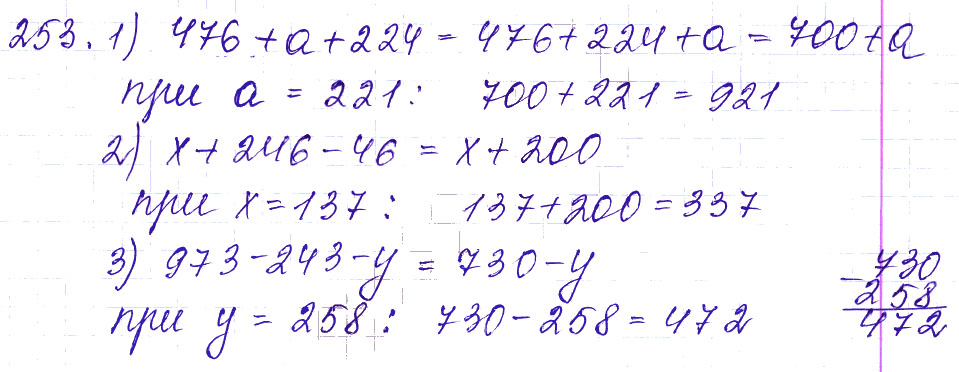 253. 1) 476 + a + 224 = 476 + 224 + a = 700 + a
при a = 221: 700 + 221 = 921
2) x + 246 - 46 = x + 200
при x = 137: 137 + 200 = 337
3) 973 - 243 - y = 730 - y
при y = 258: 730 - 258 = 472
- 730
258
472